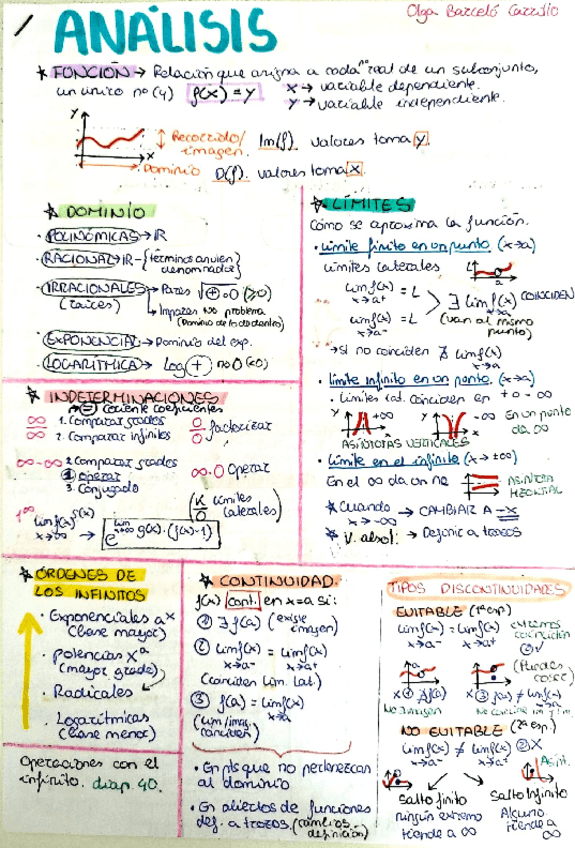 Olga Barceló Carrillo
ANÁLISIS
* FUNCIÓN → Relación que asigna a cada nº real de un subconjunto,
un único nº (y) f(x) = y x → variable dependiente.
y → variable independiente.
y
Recorrido/ imagen. Im(f). valores toma y.
x
Dominio D(f). valores toma x.
* DOMINIO
· POLINÓMICAS → IR
· RACIONAL → IR - {términos anulen denominador}
· IRRACIONALES (raíces) → Pares √+ o 0 (≥0)
→ Impares NO problema
(Dominio de lo de dentro)
· EXPONENCIAL → Dominio del exp.
· LOGARÍTMICA → Log (+) no 0 (<0)
* LÍMITES
Cómo se aproxima la función.
· Límite finito en un punto (x→a)
Límites laterales
a
lim f(x) = L
x→a+
lim f(x) = L
x→a-
∃ lim f(x) COINCIDEN
x→a
(van al mismo punto)
→ si no coinciden ∄ lim f(x)
x→a
· Límite infinito en un punto. (x→a)
· Límites lat. coinciden en +o-∞
y +∞ y -∞ En un punto da ∞
ASÍNTOTAS VERTICALES
· Límite en el infinito (x→±∞)
En el ∞ da un nº ASÍNTOTA HZONTAL
* Cuando x→-∞ → CAMBIAR A -x
* V. absol: → Definir a trozos
* INDETERMINACIONES
→ (=) Cociente coeficientes
∞/∞ 1. Comparar grados
2. Comparar infinitos
0/0 factorizar
∞-∞ 2 Comparar grados
1 operar
3. Conjugado
∞·0 Operar
(K/0 límites laterales)
1^∞ lim f(x)^g(x)
x→∞
→ e^lim x→+∞ g(x)·(f(x)-1)
* ÓRDENES DE
LOS INFINITOS
· Exponenciales a^x
(base mayor)
· Potencias x^a
(mayor grado)
· Radicales
· Logarítmicas
(base menor)
Operaciones con el
infinito. diap. 40.
* CONTINUIDAD.
f(x) cont. en x=a si:
① ∃ f(a) (existe imagen)
② lim f(x) = lim f(x)
x→a- x→a+
(Coinciden lím. lat.)
③ f(a) = lim f(x)
x→a
(lím/imag. coinciden)
· En pts que no pertenezcan
al dominio
· En abiertos de funciones
def. a trozos. (cambios definición)
TIPOS DISCONTINUIDADES
EVITABLE (1ª esp.)
lim f(x) = lim f(x)
x→a- x→a+
extremos coinciden
②✓
(Puedes coser)
X ① ∄ f(a) X ③ f(a) ≠ lim f(x)
No imagen
NO EVITABLE (2ª esp.)
lim f(x) ≠ lim f(x) ②X
x→a- x→a+
Asínt.
Salto finito
ningún extremo
tiende a ∞
Salto Infinito
Alguno
tiende a
∞